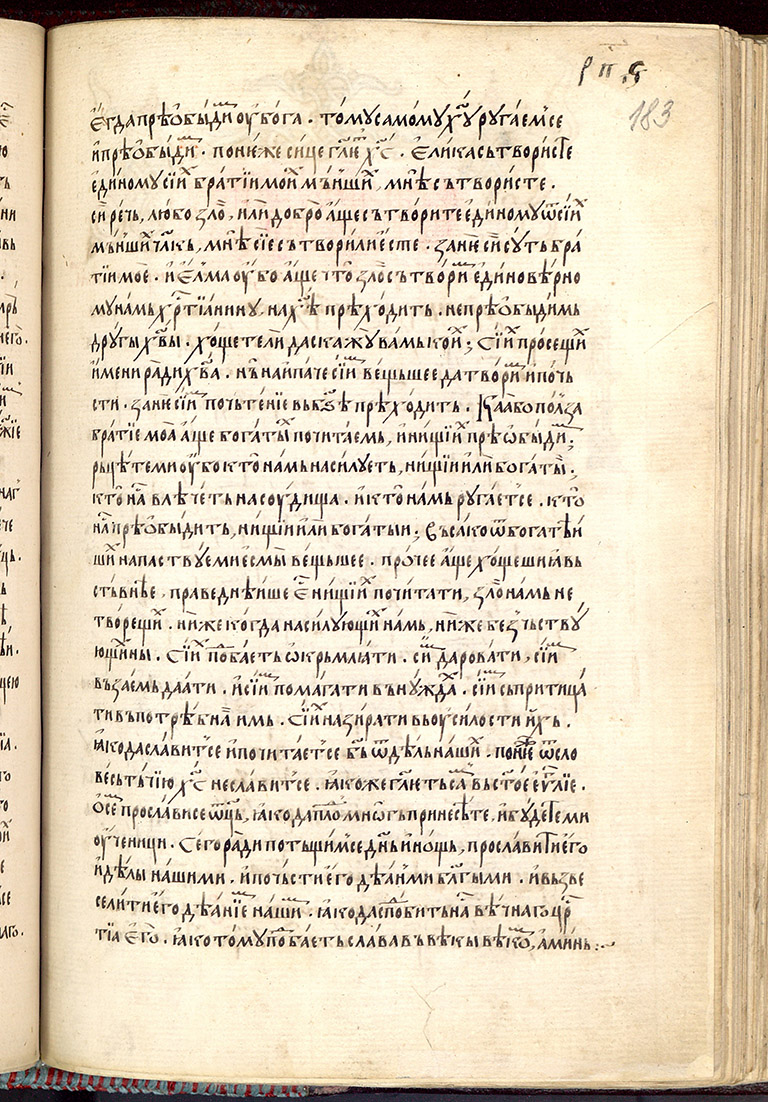 рп҃ѕ
183
Е҆гда прѣѡбыди ѹ҆бога · томѹ самомѹ хѹ҃ рѹгаем се
и҆ прѣѡбыди · понеже сице гл҃ет х҃с · Е҆лика сътвористе
е҆диномѹ сїих братїи мои мъньших, мнѣ сътвористе ·
си рѣчь, любо зло, и҆ли добро аще сътворите е҆диномѹ ѿ сїих
мъньших чл҃кь, мнѣ сїе сътворили есте · зане си сѹть бра
тїи мое · и҆ е҆лма ѹ҆бо аще что злѡ сътвори е҆диновѣрно
мѹ намь хр҃тїанинѹ, на х҃ѣ прѣходить · не прѣѡбыдимь
дрѹгы х҃вы · хощете ли да скажѹ вамь кои; Сїих просещих
имени ради х҃ва · нь наипаче сїим вещьшее да твори и҆ почь
сти · зане сїим почьтенїе вь б҃ѣ прѣходить · Каа бо полза
братїе моа аще богатых почитаемь, и҆ нищїих прѣѡбыди;
рьцѣте ми ѹ҆бо кто намь насилѹеть, нищїи и҆ли богаты;
кто на влѣчеть на сѹдища · и҆ кто намь рѹгает се · кто
на прѣѡбыдить, нищїи и҆ли богатыи; Въсако ѿ богатѣи
ших напаствѹеми е҆смы вещьшее · прочее аще хощеши ꙗвь
ствьнѣе, праведнѣише е҆ нищїих почитати, зло намь не
творещих · ниже когда насилѹющих намь, ниже безчьствѹ
ющїих ны · Сїих побаеть ѡкрьмлꙗти · сїим даровати, сїим
въза҆емь даати · и҆ сїим помагати въ нѹжда · сїим съпритица
ти въ потрѣбна имь · Сїих назирати вь ѹ҆силости их ·
ꙗко да славит се и҆ почитает се б҃ъ ѿ дѣль наших · понеже ѿ сло
весь тъчїю х҃с не славит се · ꙗкоже гл҃еть са вь ст҃ое е҆ѵ҃лїе ·
О҆ се прослави се ѿц҃ь, ꙗко да плѡ мнѡгъ принесѣте, и҆ бѹдете ми
ѹ҆ченици · Сего ради потъщим се дн҃ь и҆ нощь, прославити е҆го
и҆ дѣлы нашими · и҆ почьсти е҆го дѣанми бл҃гыми · и҆ възве
селити е҆го дѣанїе наши · ꙗко да сподобить на вѣчнаго цр҃
тїа е҆го · ꙗко томѹ побаеть слава въ вѣкы вѣкѡ, аминь :~